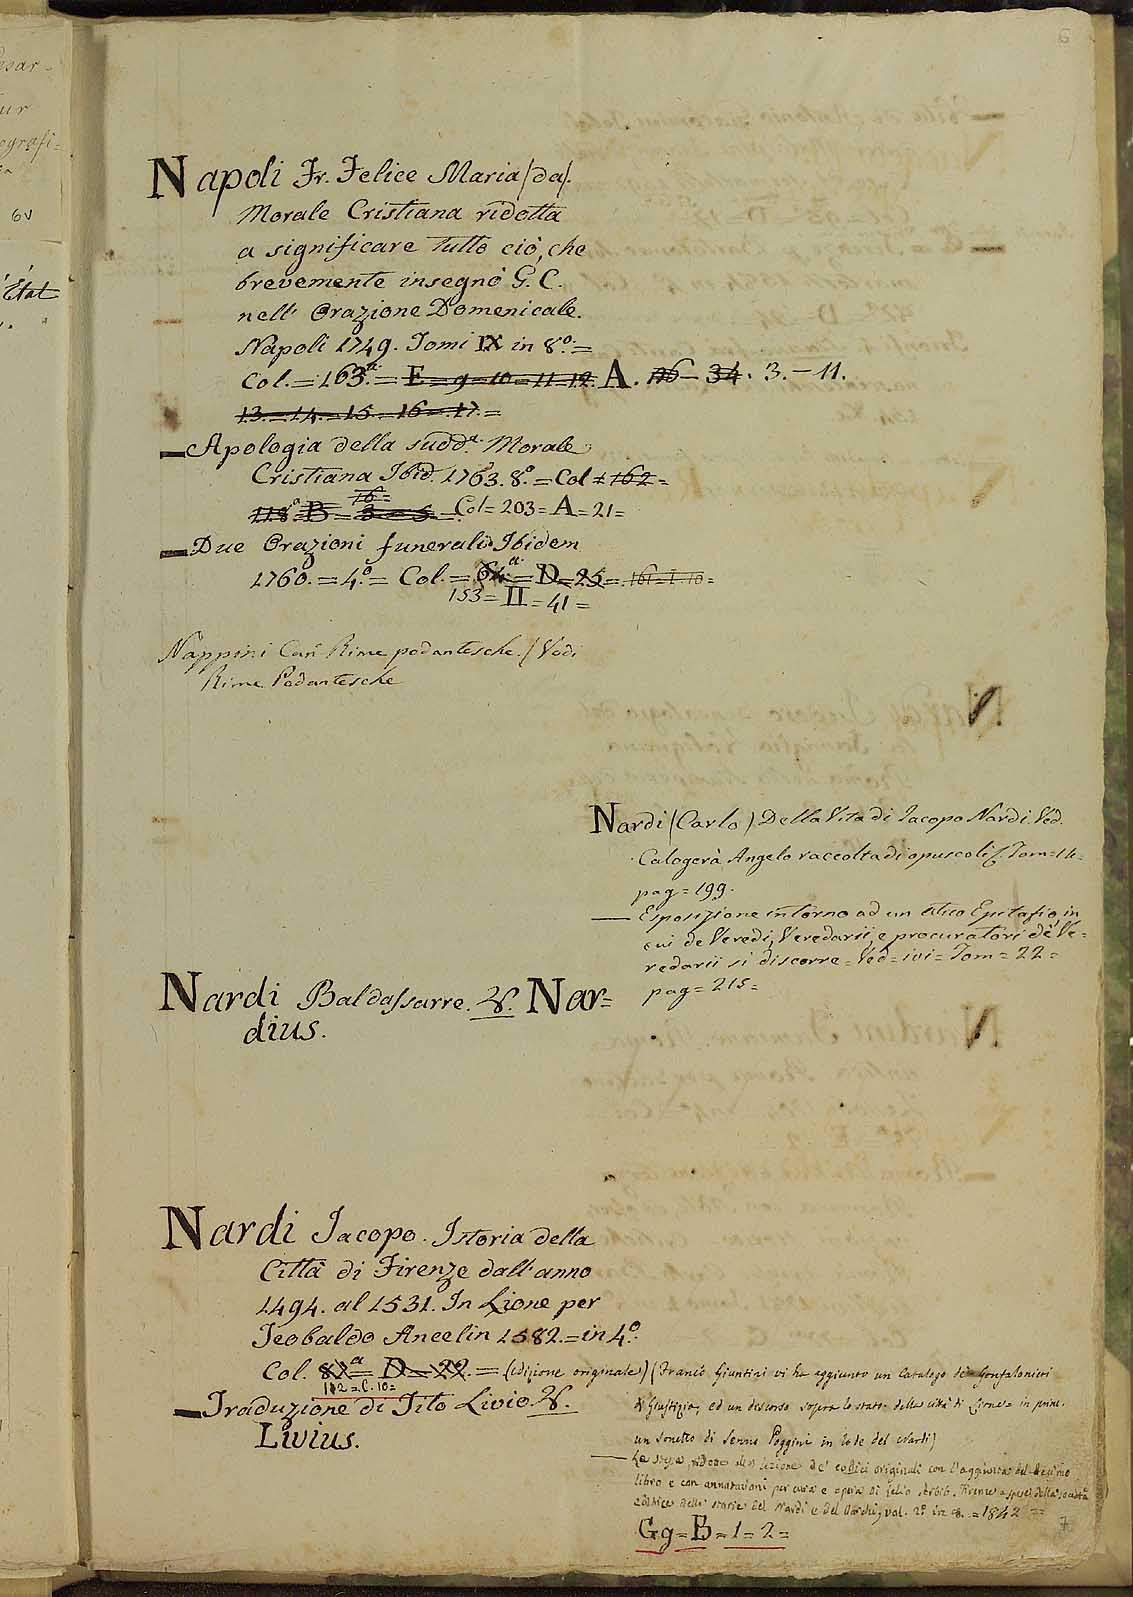 6
Napoli Fr. Felice Maria /da/.
Morale Cristiana ridotta
a significare tutto ciò, che
brevemente insegnò G. C.
nell' Orazione Domenicale.
Napoli 1749. Tomi IX in 8.o =
Col. = 163.a = E = 9 = 10 = 11 = 12. A. 116 - 34. 3. - 11.
13. = 14. = 15. = 16 = 17. =
— Apologia della sudd.a Morale
Cristiana Ibid. 1763. 8.o = Col = 162 =
16 =
118a = B = 3 = 5 = Col = 203 = A = 21 =
— Due Orazioni funerali Ibidem
1760. = 4.o = Col. = 64.a = D = 25 = 161 = I. 10 =
153 = II = 41 =
Nappini Can. Rime pedantesche. / Vedi
Rime Pedantesche
Nardi (Carlo) Della Vita di Jacopo Nardi. Ved.
Calogerà Angelo raccolta di opuscoli &. Tom = 14 =
pag = 199.
— Esposizione intorno ad un antico Epitafio, in
cui de Veredi, Veredarii, e procuratori de' Ve=
redarii si discorre = Ved = ivi = Tom = 22 =
pag = 215 =
Nardi Baldassarre. V. Nar=
dius.
Nardi Jacopo. Istoria della
Città di Firenze dall' anno
1494. al 1531. In Lione per
Teobaldo Ancelin 1582. = in 4.o
Col. 82a = D = 22. = (edizione originale) (Franco Giuntini vi ha aggiunto un Catalogo de Gonfalonieri
112 = C. 10 =
di Giustizia, ed un discorso sopra lo stato della città di Firenze in princ.
— Traduzione di Tito Livio V.
Livius.
un sonetto di Poggini in lode del Nardi)
— La stessa ridotta alla lezione de' codici originali con l'aggiunta del decimo
libro e con annotazioni per cura e opera di Lelio Arbib. Firenze a spese della società
editrice delle storie del Nardi e del Varchi, vol. 2.o in 8. = 1842 =
Gg = B = 1 = 2 =
7